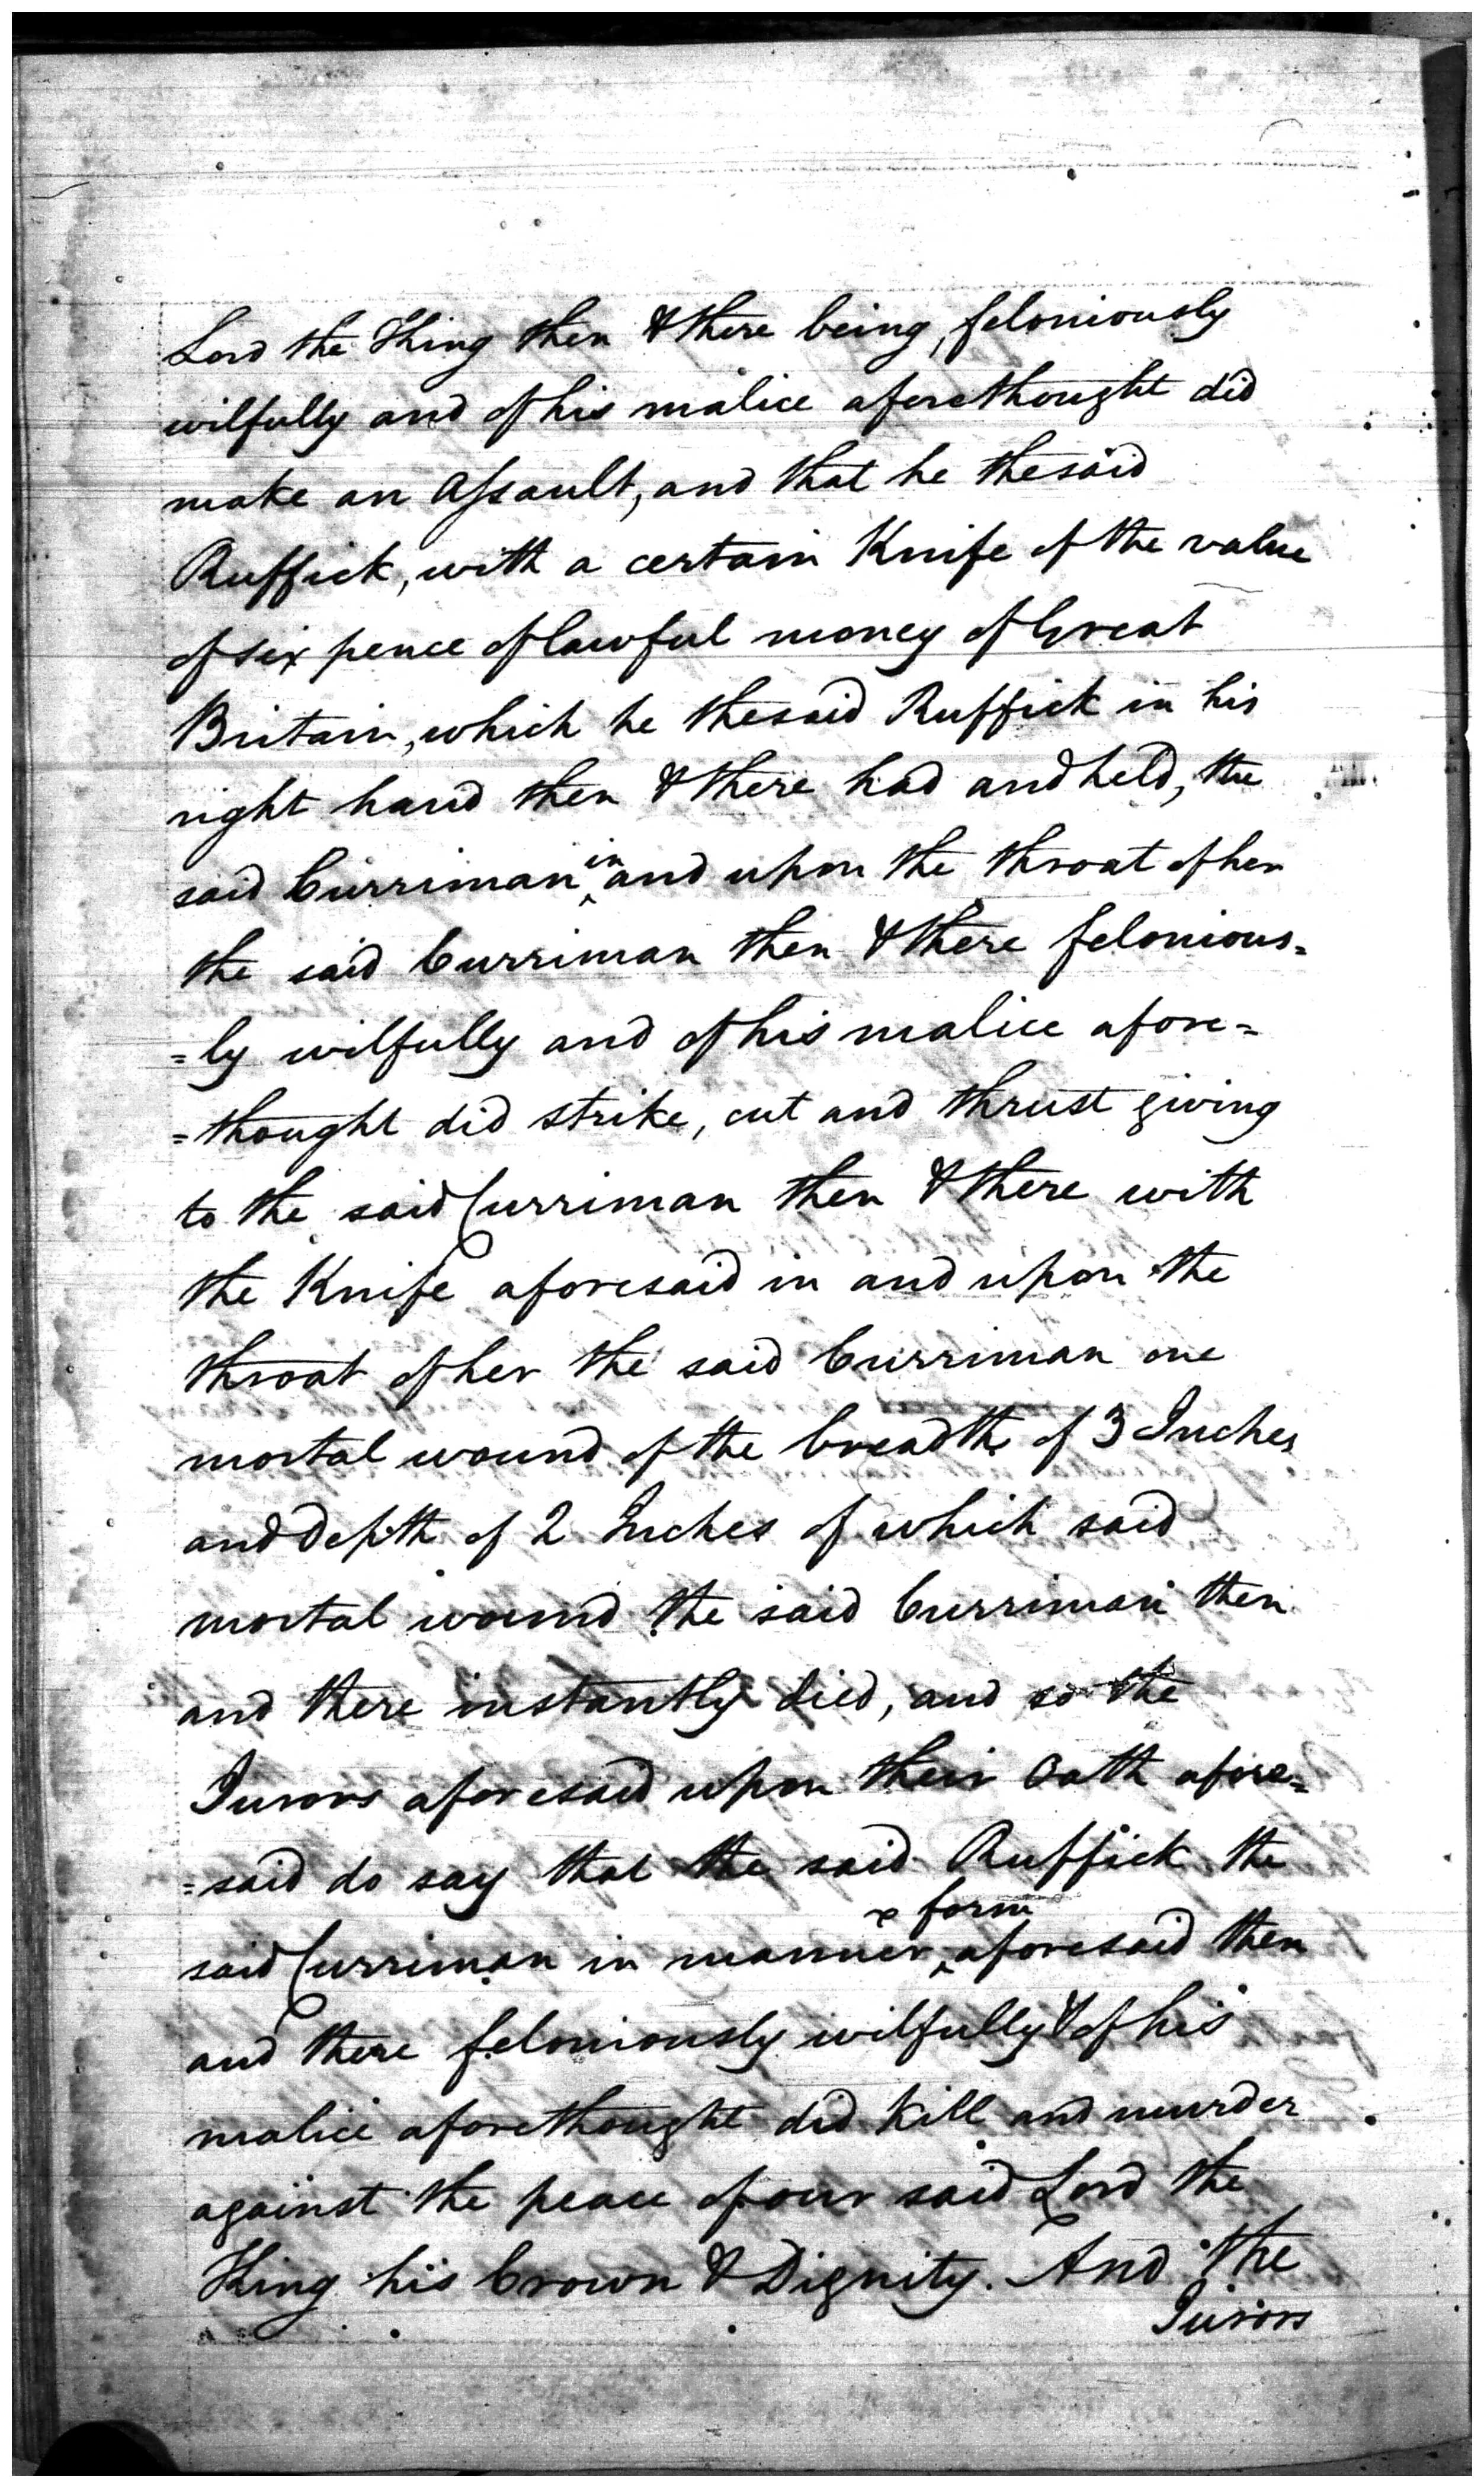 Lord the King then & there being, feloniously
wilfully and of his malice aforethought did
make an Assault, and that he the said
Ruffick, with a certain Knife of the value
of six pence of lawful money of Great
Britain, which he the said Ruffick in his
right hand then & there had and held, the
said Curriman in and upon the throat of her
the said Curriman then & there felonious=
=ly wilfully and of his malice afore=
=thought did strike, cut and thrust giving
to the said Curriman then & there with
the Knife aforesaid in and upon the
throat of her the said Curriman one
mortal wound of the breadth of 3 Inches
and Depth of 2 Inches of which said
mortal wound the said Curriman then
and there instantly died, and so the
Jurors aforesaid upon their Oath afore=
=said do say that the said Ruffick the
said Curriman in manner & form aforesaid then
and there feloniously wilfully & of his
malice aforethought did Kill and murder
against the peace of our said Lord the
King his Crown & Dignity. And the
Jurors